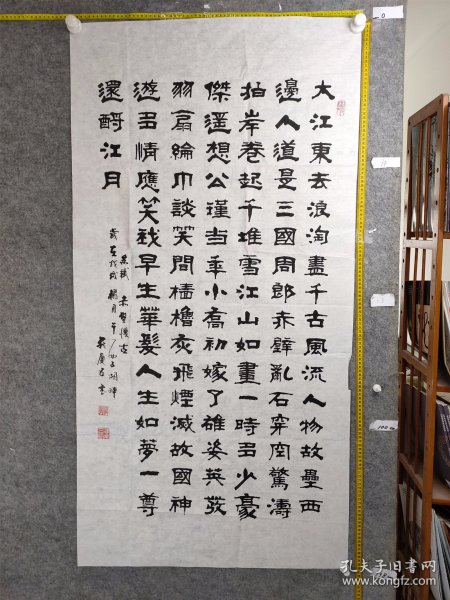 大江東去浪淘盡千古風流人物故壘西
邊人道是三國周郎赤壁亂石穿空驚濤
拍岸卷起千堆雪江山如畫一時多少豪
傑遥想公瑾当年小喬初嫁了雄姿英發
羽扇綸巾談笑間檣櫓灰飛煙滅故國神
遊多情應笑我早生華髮人生如夢一尊
還酹江月
赤壁懷古
孔夫子旧书网
www.kongfz.com